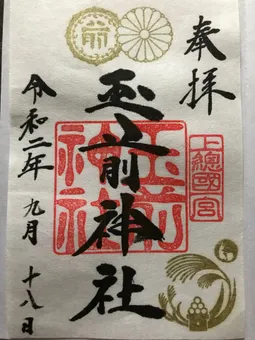 奉拝
上總國一宮
玉前神社
玉前神社
令和二年 九月 十八日
前